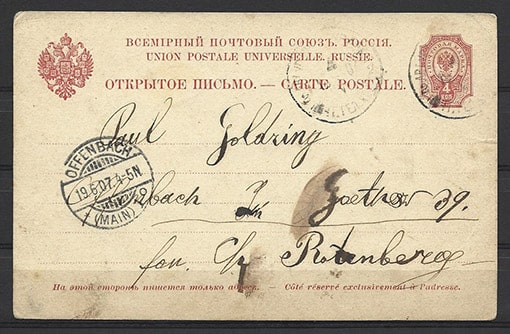 ВСЕМІРНЫЙ ПОЧТОВЫЙ СОЮЗЪ. РОССІЯ.
UNION POSTALE UNIVERSELLE. RUSSIE.
ОТКРЫТОЕ ПИСЬМО. — CARTE POSTALE.
4
Paul Goldring
OFFENBACH
19.6.07. 4-5N
(MAIN)
39.
fon. Ch. Rotenberg
На этой сторонѣ пишется только адресъ. — Côté réservé exclusivement à l'adresse.